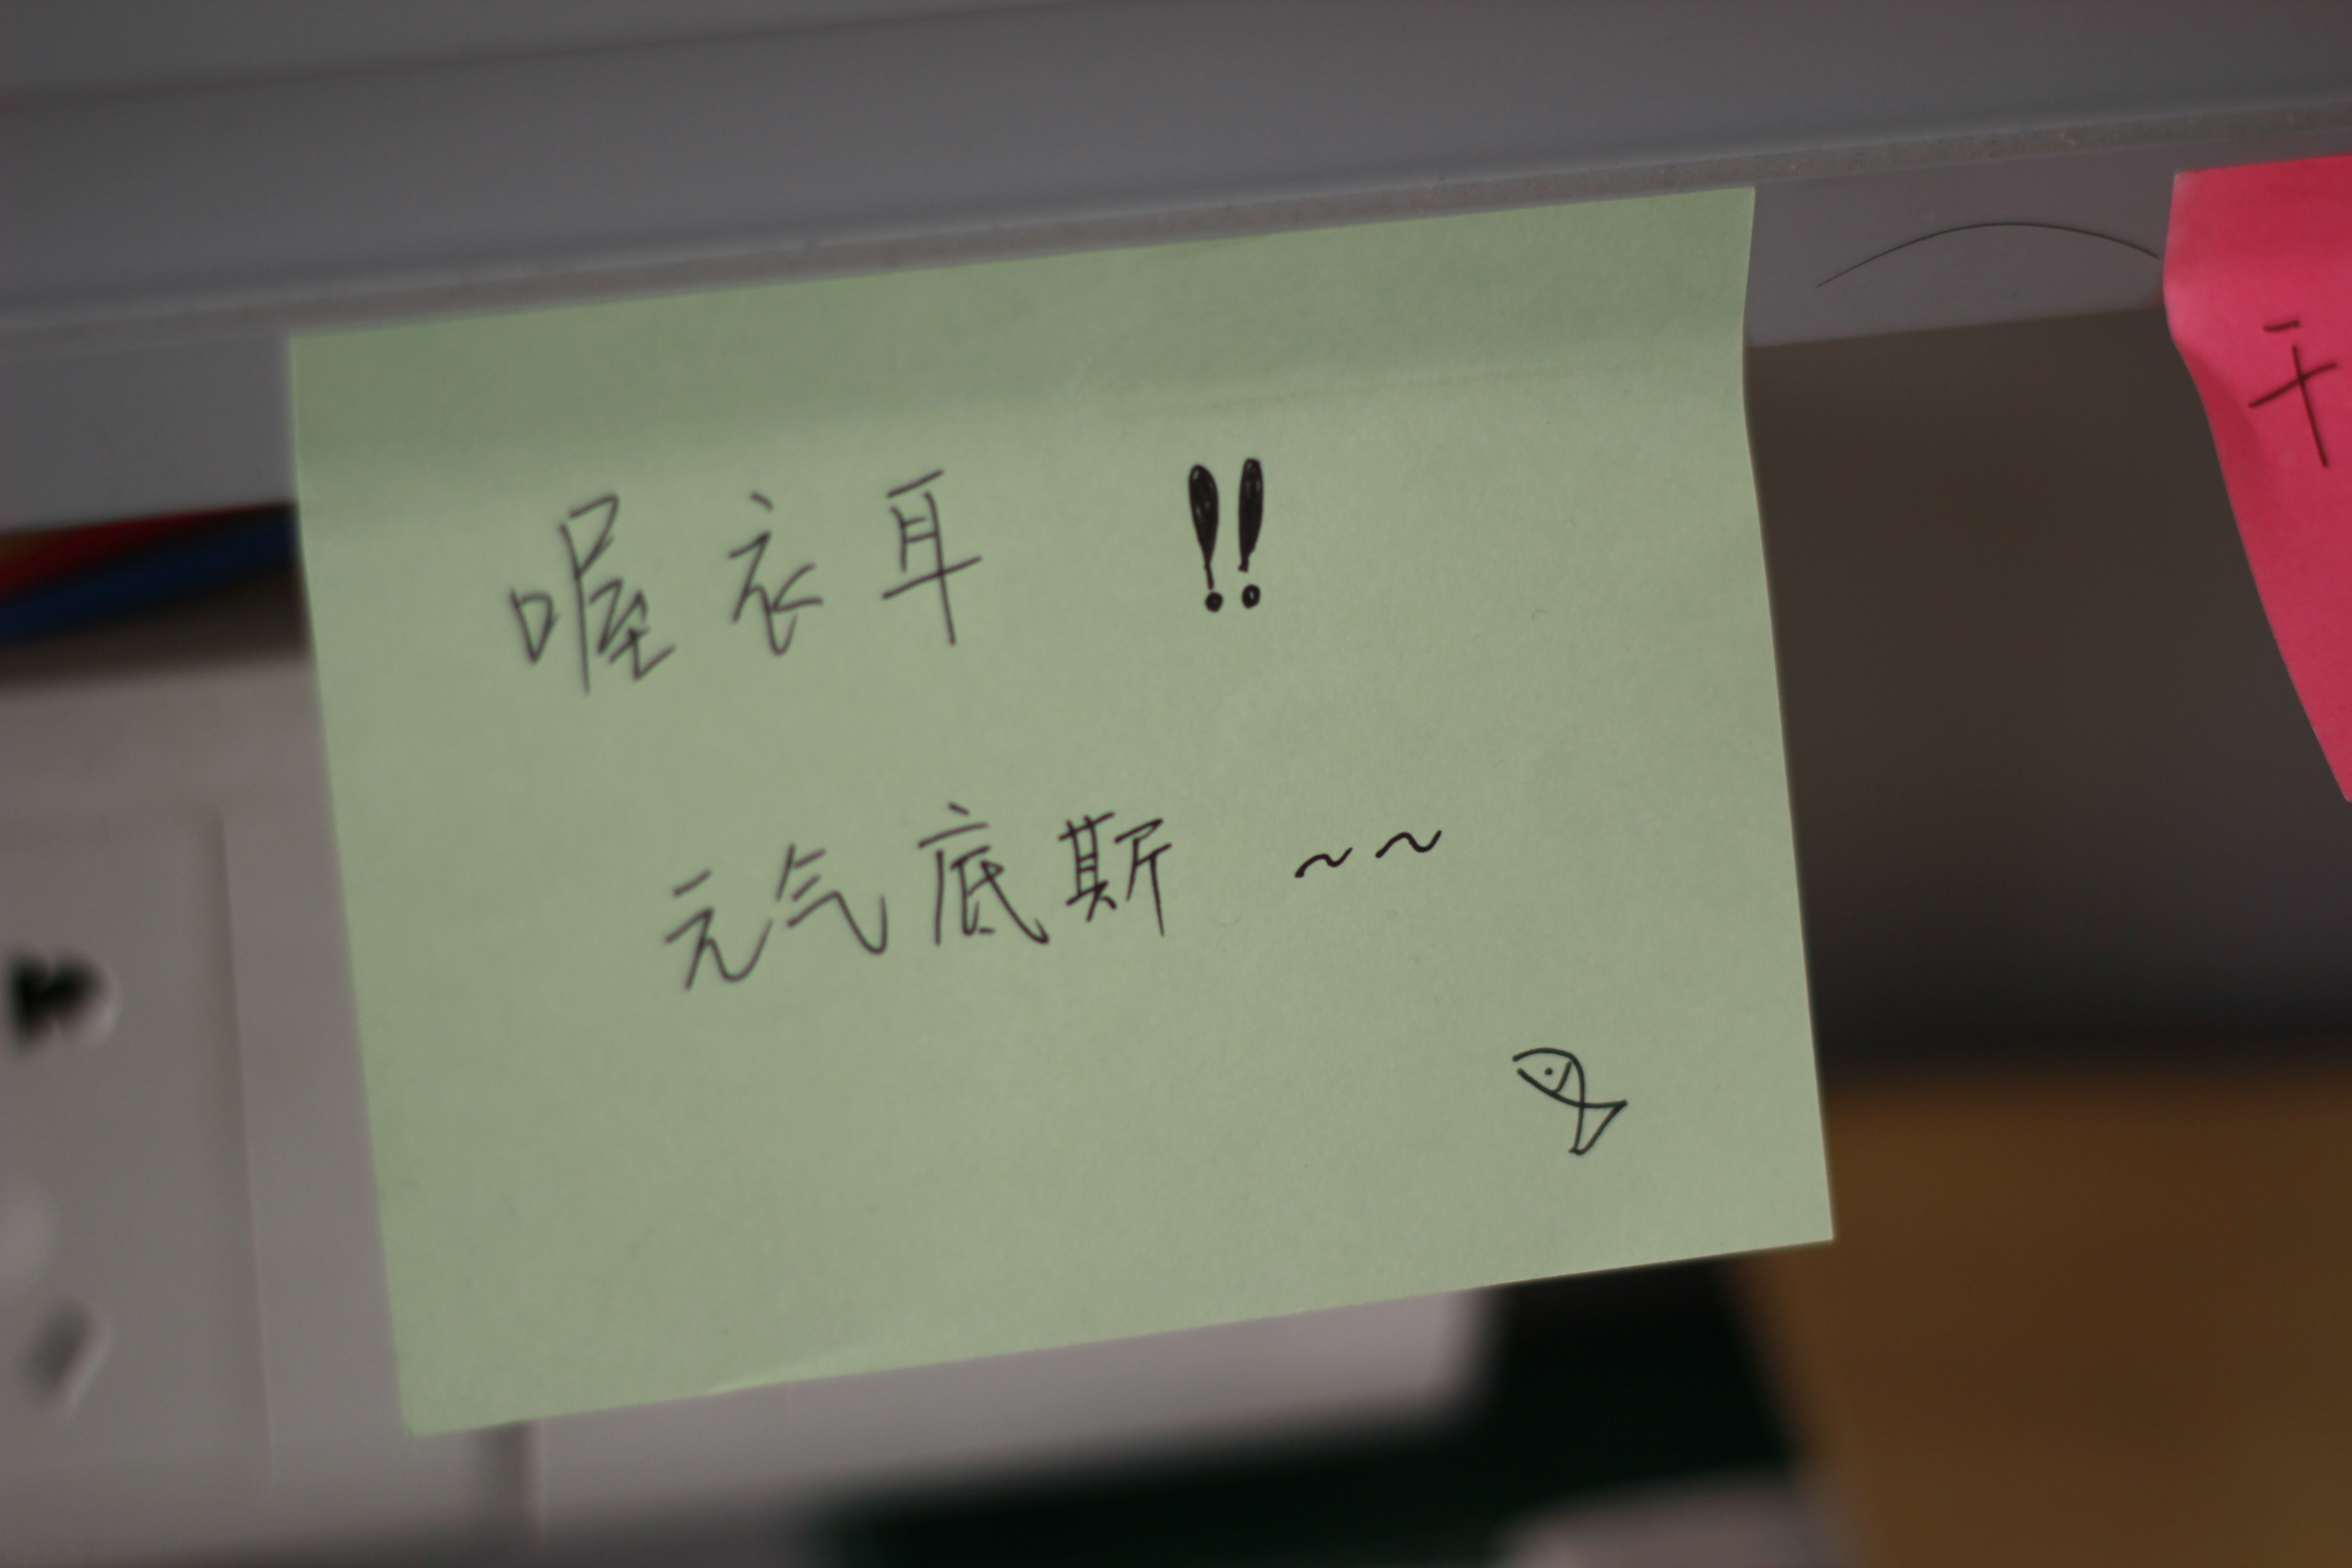 喔衣耳 !!
元气底斯 ~~
干